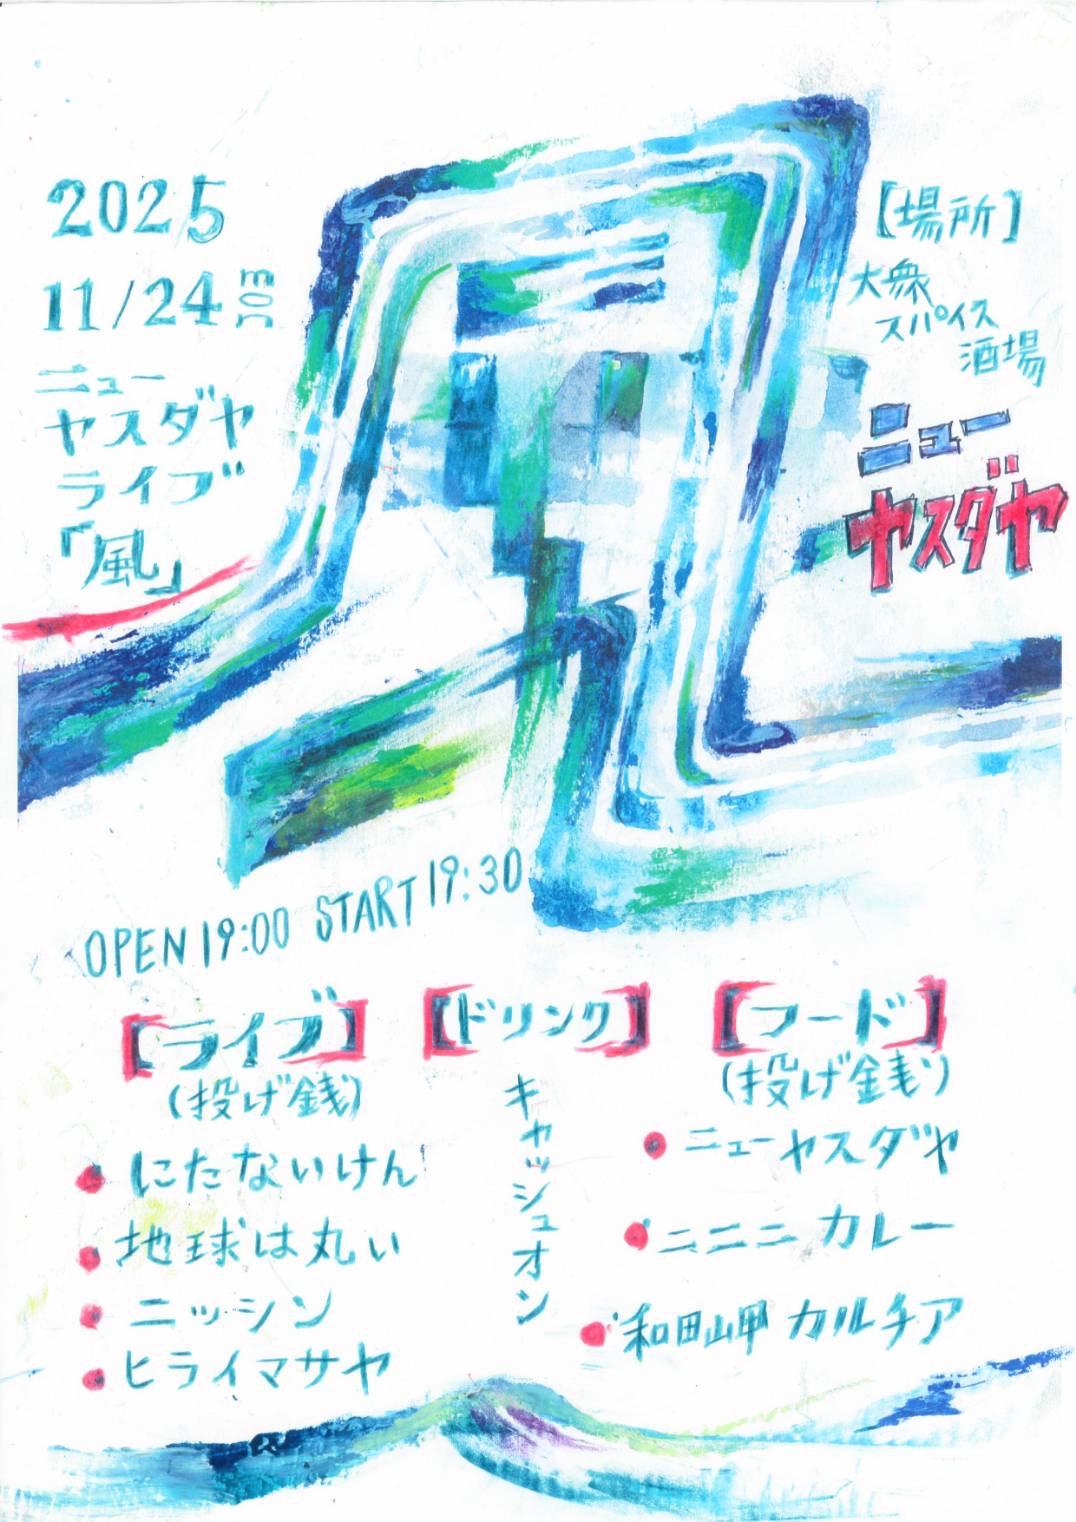 2025
11/24
ニュー
ヤスダヤ
ライブ
「風」
【場所】
大衆
スパイス
酒場
ニュー
ヤスダヤ
OPEN 19:00 START 19:30
【ライブ】
(投げ銭)
にたないけん
地球は丸い
ニッシン
ヒライマサヤ
【ドリンク】
キャッシュオン
【フード】
(投げ銭)
ニューヤスダヤ
ニニニカレー
和田岬カルチア